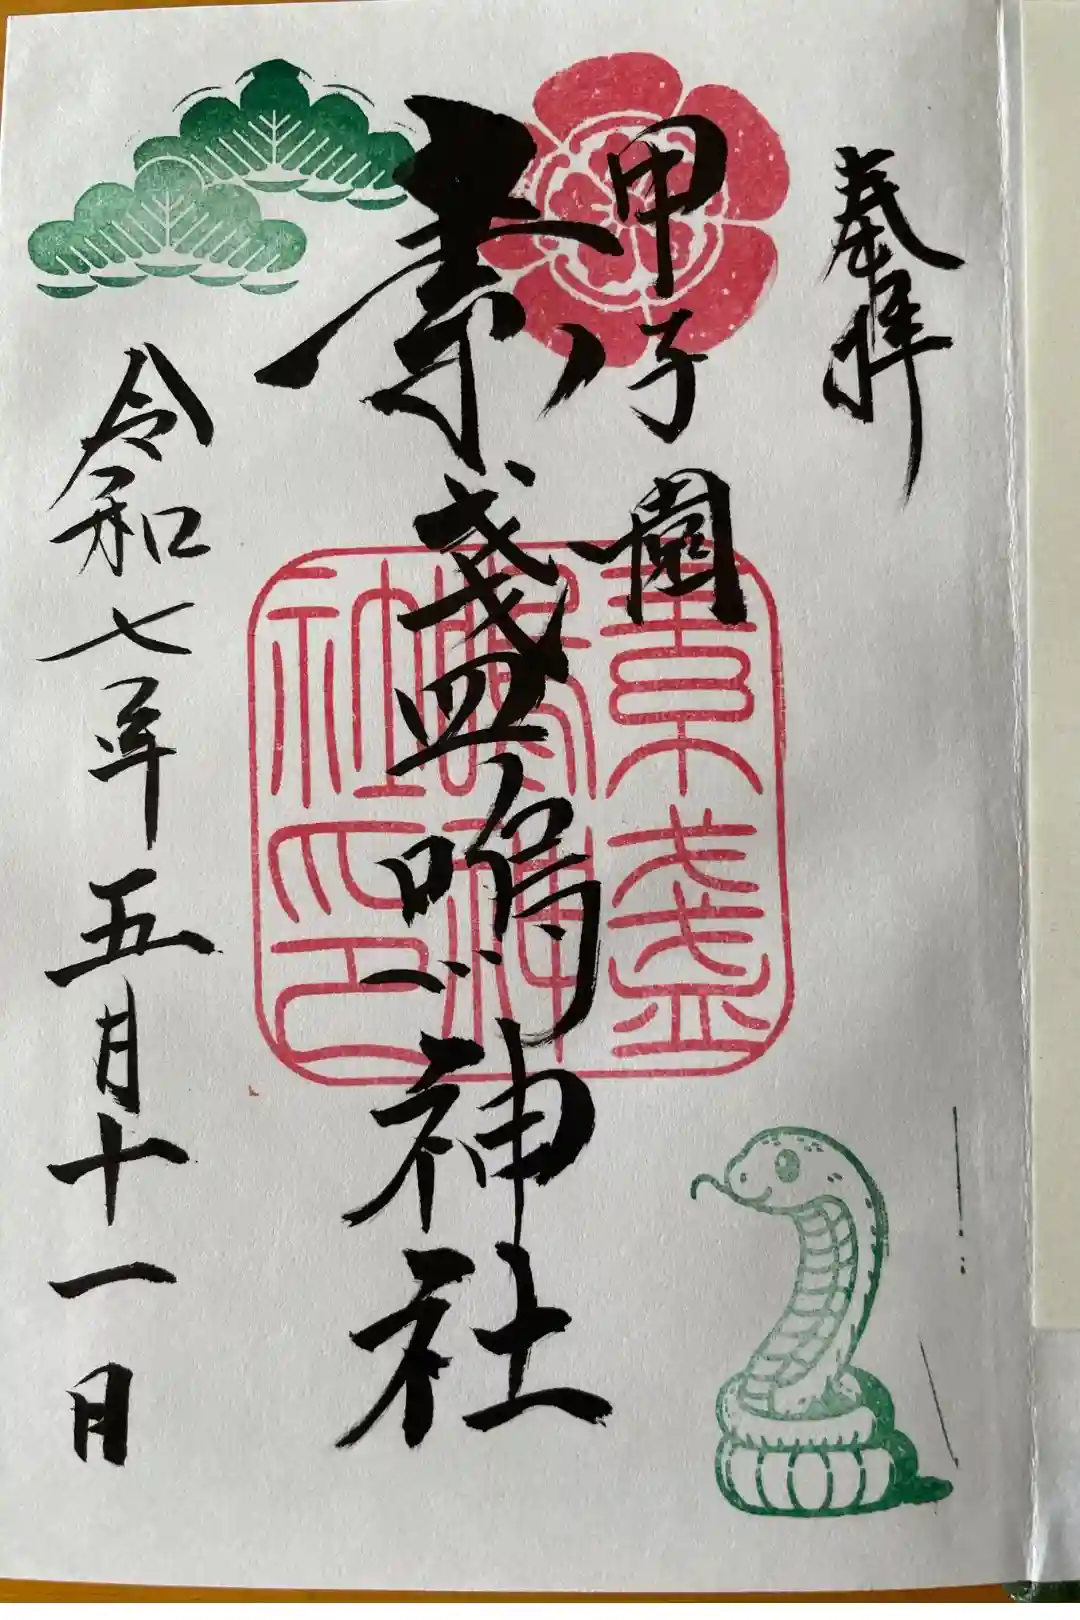 奉拝
甲子園
素盞嗚神社
素盞
嗚神
社印
令和七年五月十一日